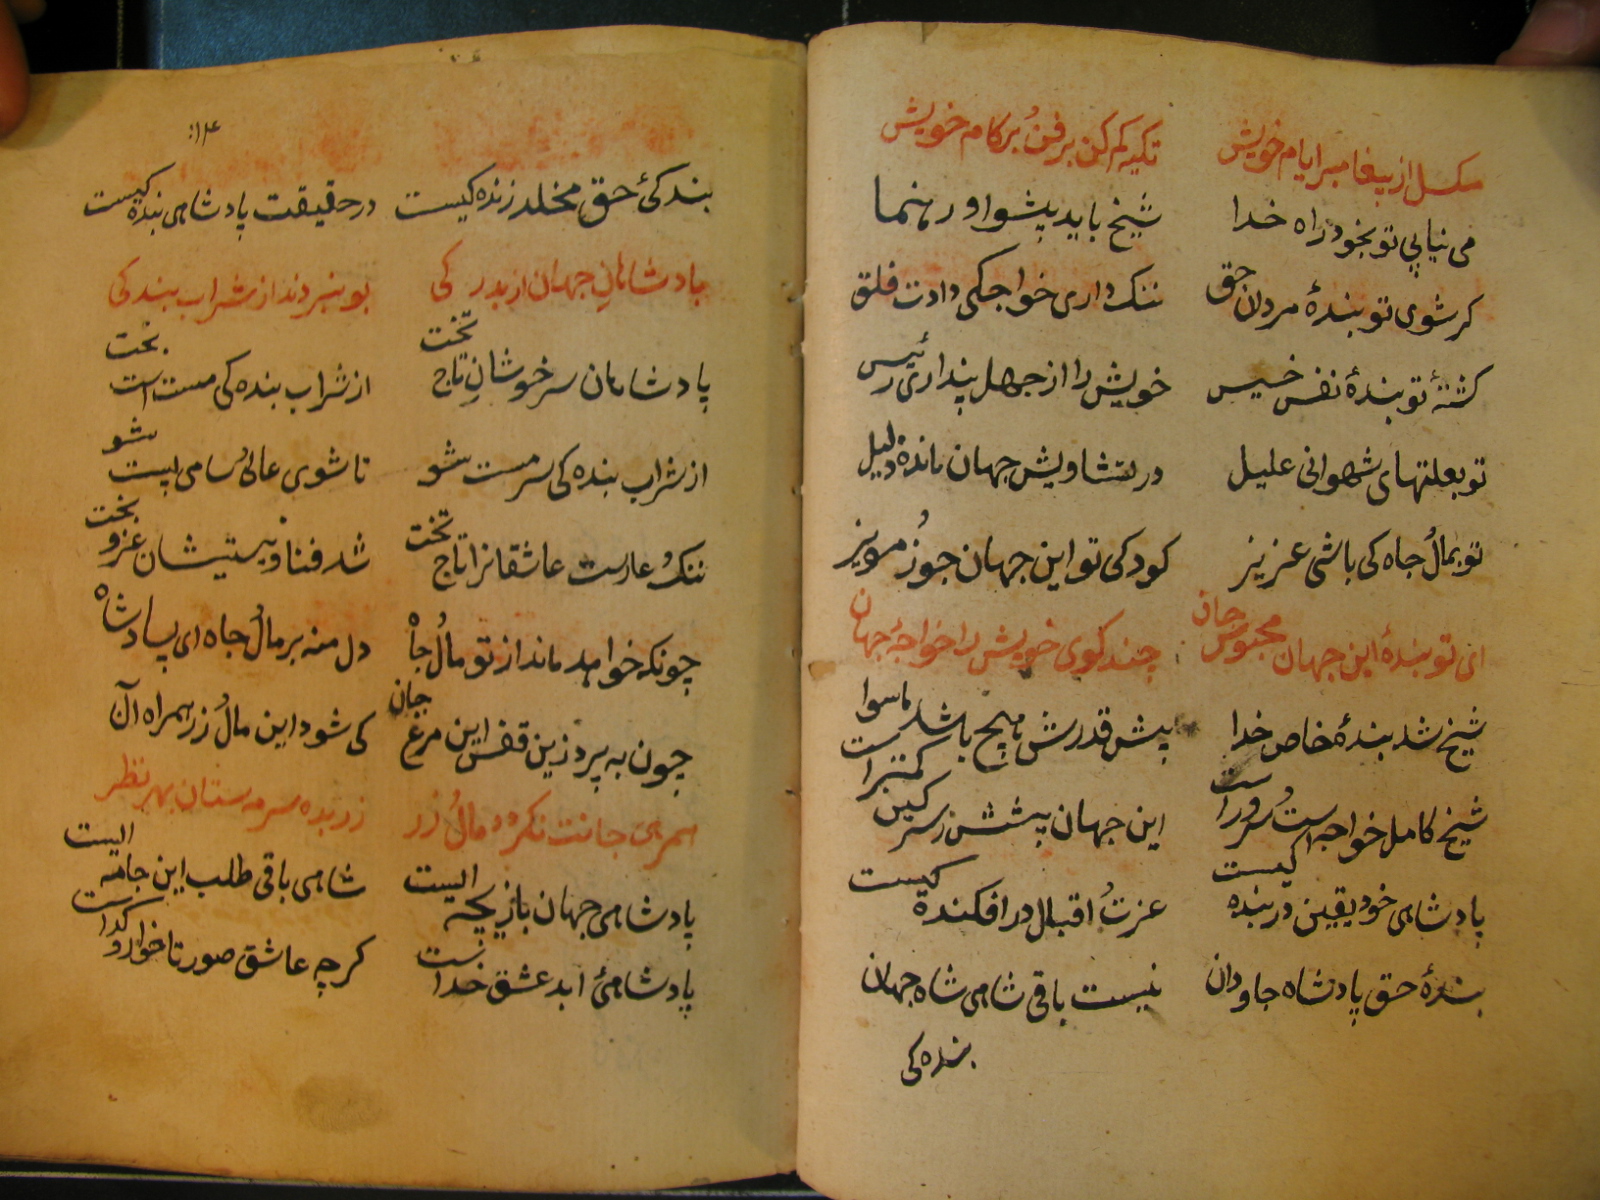 مسکل از پیغامبر ایام خویش تکیه کم کن بر فن و بر کام خویش
می نیابی تو بخود راه خدا شیخ باید پیشوا و رهنما
کر شوی تو بندهٔ مردان حق ننک داری خواجکی دادت قلق
کشتهٔ تو بندهٔ نفس خسیس خویش را از جهل پنداری رئیس
تو بعلتهای شهوانی علیل در جهان مانده ذلیل
تو بمال و جاه کی باشی عزیز کودکی تو این جهان جوز و مویز
ای تو بندهٔ این جهان محبوس جان چند کوی خویش را خواجهٔ جهان
شیخ شد بندهٔ خاص خدا پیش قدرش هیچ باشد ماسوا
شیخ کامل خواجه است و سرورست این جهان پیشش ز سرکین کمترست
پادشاهی خود یقین در بنده کیست عزت و اقبال در افکنده کیست
بندهٔ حق پادشاه جاودان نیست باقی شاهی شاه جهان
بنده کی
۱۴
بندکیٔ حق مخلد زنده کیست در حقیقت پادشاهی بنده کیست
پادشاهان جهان از بدرکی بو نبردند از شراب بندکی
پادشاهان سرخوشان تاج تخت از شراب بنده کی مست است بخت
از شراب بنده کی سرمست شو تا شوی عالی و سامی پست شو
ننک و عارست عاشقانرا تاج تخت شد فنا و نیستیشان عز و بخت
چونکه خواهد ماند از تو مال و جاه دل منه بر مال و جاه ای پادشاه
چون به پرد زین قفس این مرغ جان کی شود این مال و زر همراه آن
همرهی جانت نکرد و مال و زر زر بده سرمه ستان بهر نظر
پادشاهی جهان بازیچه ایست شاهی باقی طلب این جامه ایست
پادشاهیٔ ابد عشق خداست کرچه عاشق صورتا خوار و کداست